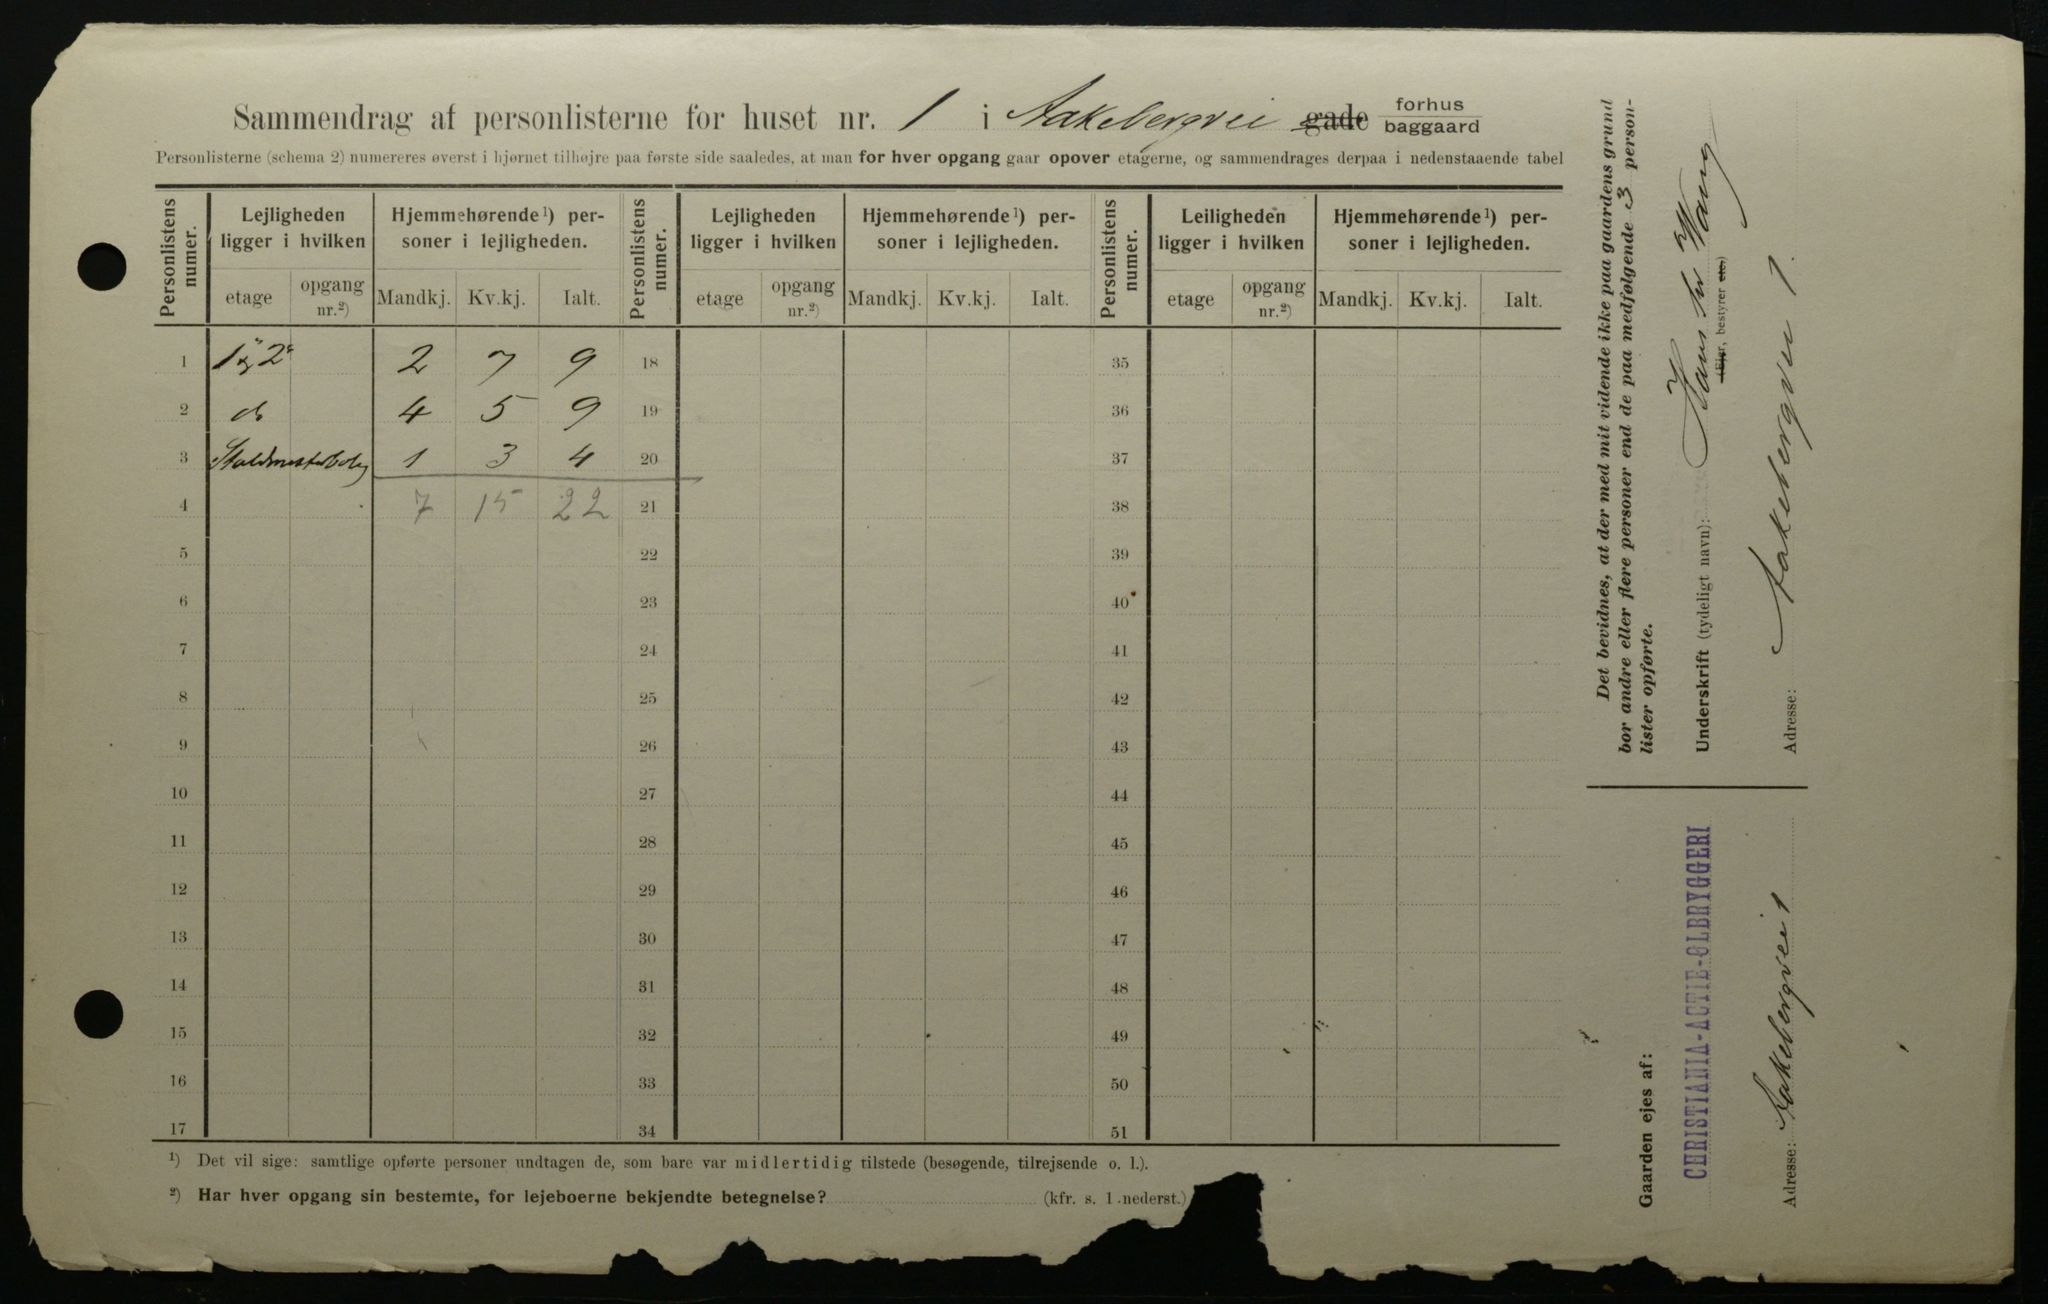 Sammendrag af personlisterne for huset nr. 1 i Aakebergvei gade forhus baggaard
Personlisterne (schema 2) numereres øverst i hjørnet tilhøjre paa første side saaledes, at man for hver opgang gaar opover etagerne, og sammendrages derpaa i nedenstaaende tabel
Personlistens numer. Lejligheden ligger i hvilken Hjemmehørende¹) personer i lejligheden. Personlistens numer. Lejligheden ligger i hvilken Hjemmehørende¹) personer i lejligheden. Personlistens numer. Leiligheden ligger i hvilken Hjemmehørende¹) personer i lejligheden.
etage opgang nr.²) Mandkj. Kv.kj. Ialt. etage opgang nr.²) Mandkj. Kv.kj. Ialt. etage opgang nr.²) Mandkj. Kv.kj. Ialt.
1 1 og 2 2 7 9 18 35
2 do 4 5 9 19 36
3 Staldmesterbolig 1 3 4 20 37
4 7 15 22 21 38
5 22 39
6 23 40
7 24 41
8 25 42
9 26 43
10 27 44
11 28 45
12 29 46
13 30 47
14 31 48
15 32 49
16 33 50
17 34 51
¹) Det vil sige: samtlige opførte personer undtagen de, som bare var midlertidig tilstede (besøgende, tilrejsende o. l.).
²) Har hver opgang sin bestemte, for lejeboerne bekjendte betegnelse? (kfr. s. 1 nederst.)
Det bevidnes, at der med mit vidende ikke paa gaardens grund
bor andre eller flere personer end de paa medfølgende 3 person-
lister opførte.
Underskrift (tydeligt navn): Hans
(Ejer, bestyrer etc.)
Adresse: Aakebergvei 1.
Gaarden ejes af:
CHRISTIANIA-ACTIE-ØLBRYGGERI
Adresse: Aakebergvei 1